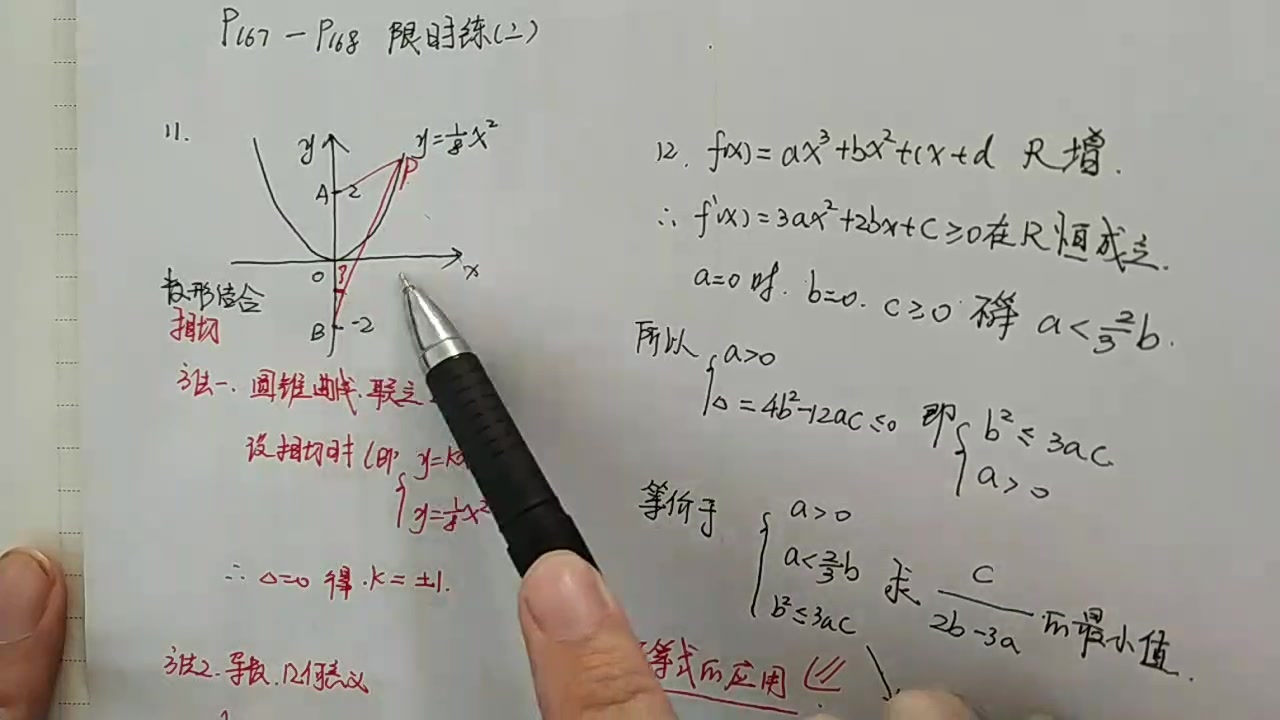 P167-P168 限时练(二)
11.
y
y=1/8x²
P
A 2
O
x
B -2
数形结合
相切
方法一. 圆锥曲线. 联立
设相切时(即 y=k
y=1/8x²
∴ Δ=0 得. k=±1.
方法2. 导数. 几何意义
12. f(x)=ax³+bx²+cx+d R增.
∴ f'(x)=3ax²+2bx+c≥0在R恒成立.
a=0时. b=0. c≥0. a<2/3b.
所以 a>0
Δ=4b²-12ac≤0 即 b²≤3ac
a>0
等价于 a>0
a<2/3b 求 c/(2b-3a) 的最小值.
b²≤3ac
等式的应用